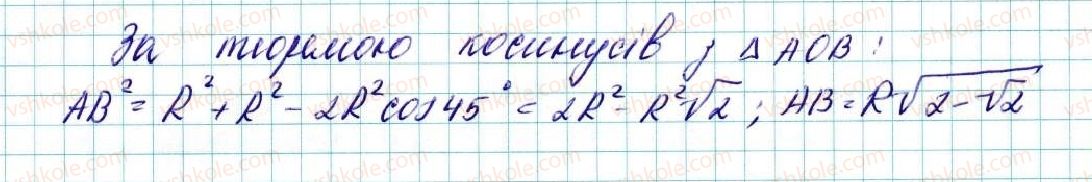 За теоремою косинусів з Δ AOB:
AB² = R² + R² - 2R² cos 45° = 2R² - R²√2; AB = R√(2-√2)